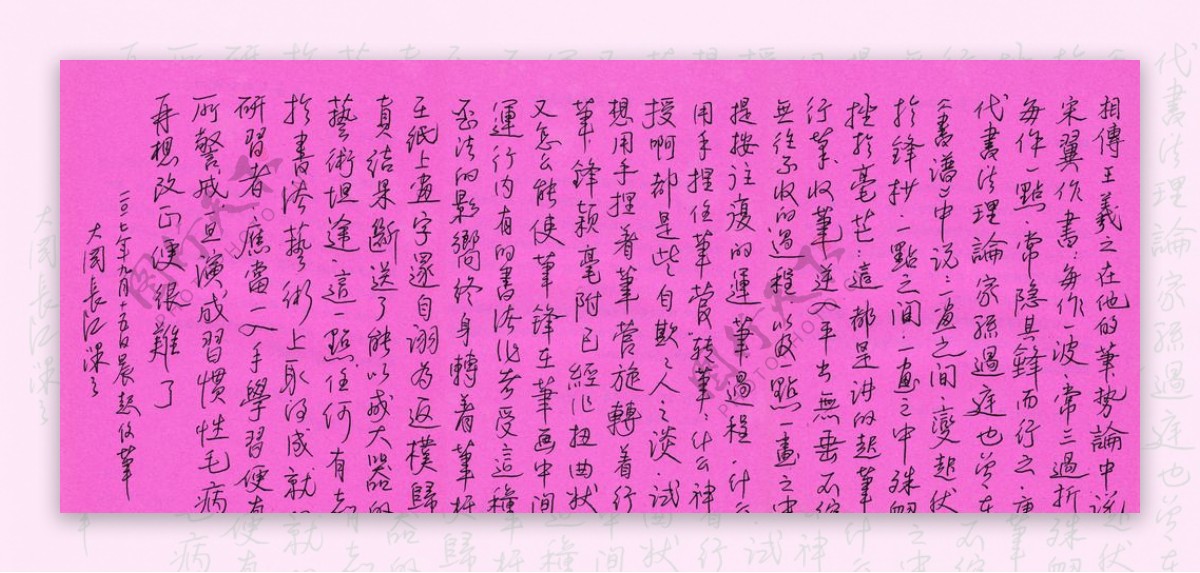 相傳王羲之在他的筆勢論中说
宋翼作書：每作一波，常三過折
每作一點，常隐其鋒而行之，唐
代書法理論家孫過庭也曾在
《書譜》中说：一畫之间，變起伏
於鋒抄，一點之间，一畫之中殊衂
挫於毫芒：這都是讲的起筆
行筆收筆逆入平出無垂不缩
無往不收的過程以及一點一畫之中
提按往復的運筆過程，什么
用手捏住筆管，轉筆，什么神
授啊都是些自欺欺人之淡，试
想用手捏着筆管旋轉着行
筆，鋒颖毫附已經作扭曲状
又怎么能使筆鋒在筆画中间
運行内有的書法作者受這種
不法的影響終身轉着筆杆
在紙上畫字還自诩为返樸歸
真结果断送了能以成大器的
藝術坦途，這一點任何有志
於書法藝術上取得成就
研習者應當一入手學習便有
所警戒一旦演成習慣性毛病
再想改正便很難了
二〇一七年九月十五日晨起信筆
大岡長江深之